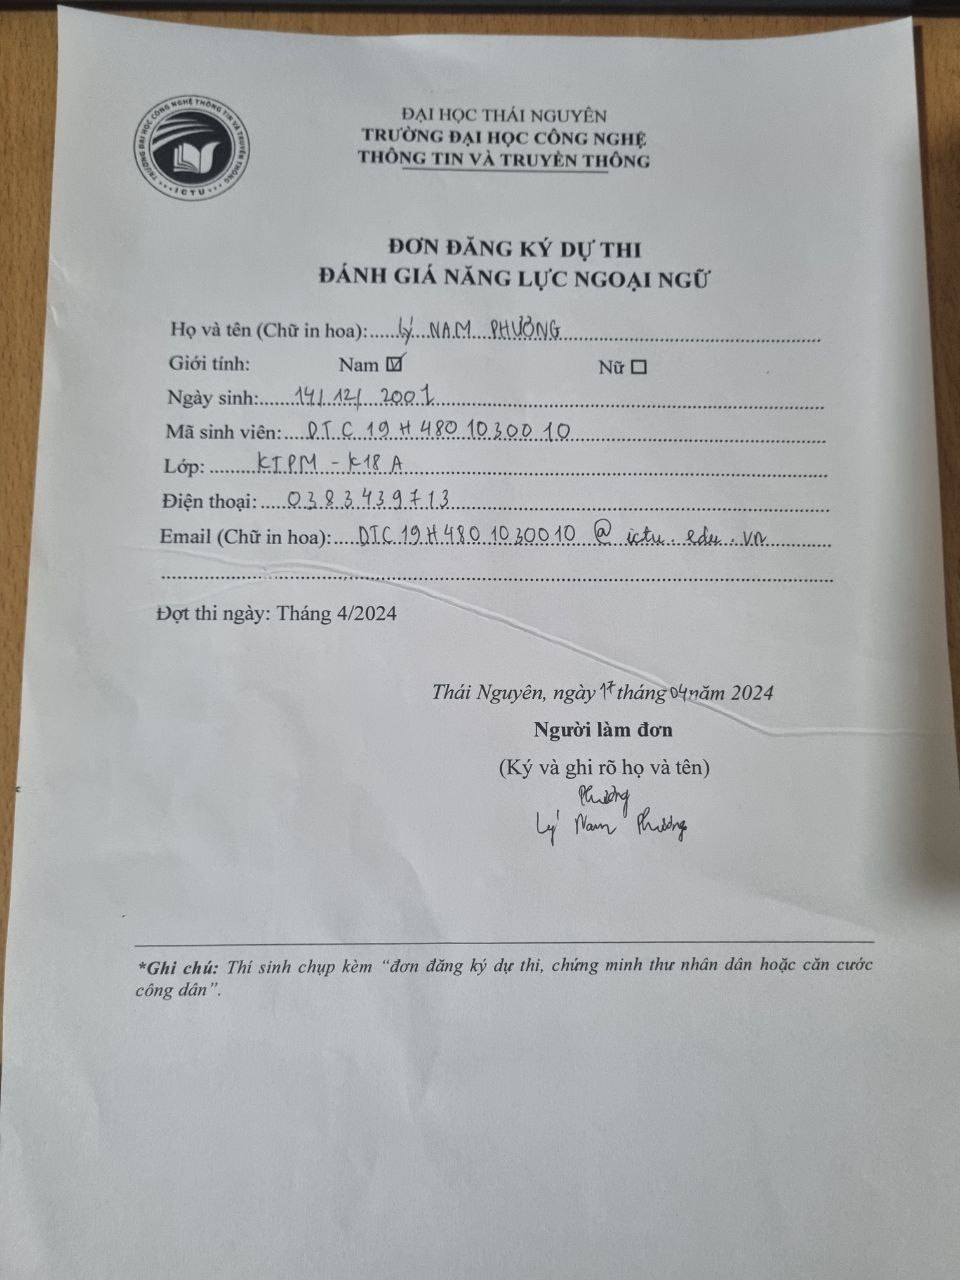 TRƯỜNG ĐẠI HỌC CÔNG NGHỆ THÔNG TIN VÀ TRUYỀN THÔNG
ICTU
ĐẠI HỌC THÁI NGUYÊN
TRƯỜNG ĐẠI HỌC CÔNG NGHỆ
THÔNG TIN VÀ TRUYỀN THÔNG
ĐƠN ĐĂNG KÝ DỰ THI
ĐÁNH GIÁ NĂNG LỰC NGOẠI NGỮ
Họ và tên (Chữ in hoa): LÝ NAM PHƯƠNG
Giới tính: Nam ☑ Nữ ☐
Ngày sinh: 14/12/2001
Mã sinh viên: DTC19H4801030010
Lớp: KTPM - K18A
Điện thoại: 0383439713
Email (Chữ in hoa): DTC19H4801030010@ictu.edu.vn
Đợt thi ngày: Tháng 4/2024
Thái Nguyên, ngày 17 tháng 04 năm 2024
Người làm đơn
(Ký và ghi rõ họ và tên)
Phương
Lý Nam Phương
*Ghi chú: Thí sinh chụp kèm “đơn đăng ký dự thi, chứng minh thư nhân dân hoặc căn cước
công dân”.